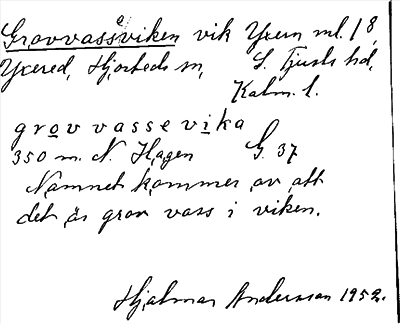 Grovvassviken vik Yxern ml. 18
Yxered, Hjorteds sn, S. Tjusts hd,
Kalm. l.
grov vassevika
350 m. N. Hagen G. 37
Namnet kommer av att
det är grov vass i viken.
Hjalmar Andersson 1952.